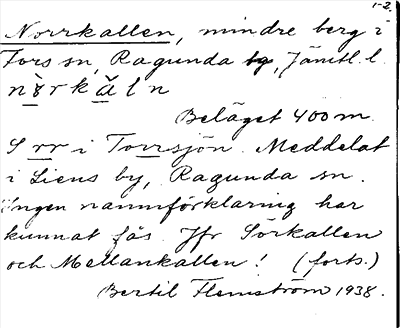 1-2.
Norrkallen, mindre berg i
Fors sn, Ragunda tg, Jämtl. l.
Beläget 400 m.
S rr i Torrsjön. Meddelat
i Liens by, Ragunda sn.
Ingen namnförklaring har
kunnat fås. Jfr Sörkallen
och Mellankallen! (forts.)
Bertil Flemström 1938.